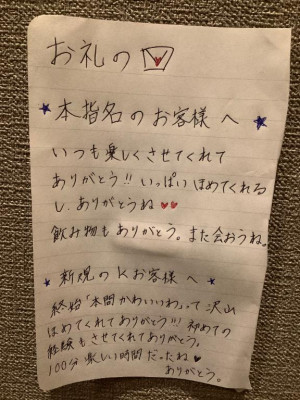 お礼の💌
★本指名のお客様へ★
いつも楽しくさせてくれて
ありがとう!! いっぱいほめてくれる
し、ありがとうね♥♥
飲み物もありがとう。また会おうね。
★新規のKお客様へ★
終始「本間かわいいわ」って沢山
ほめてくれてありがとう!!! 初めての
経験もさせてくれてありがとう。
100分楽しい時間だったね♥
ありがとう。